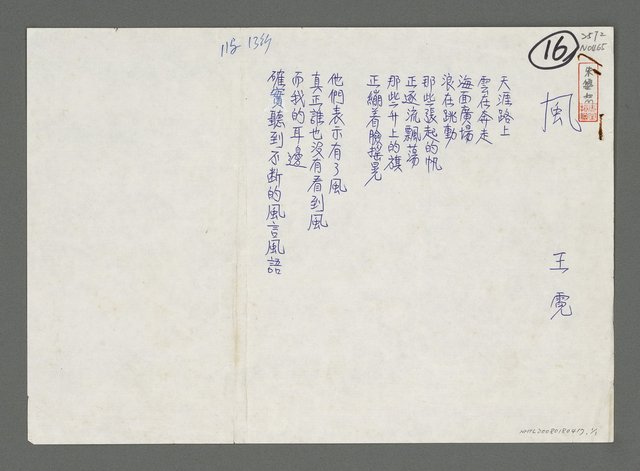 11級 13行
16
2572
N0465
風
王霓
天涯路上
雲在奔走
海面廣場
浪在跳動
那些張起的帆
正逐流飄蕩
那些升上的旗
正繃着臉搖晃
他們表示有了風
真正誰也沒有看到風
而我的耳邊
確實聽到不斷的風言風語